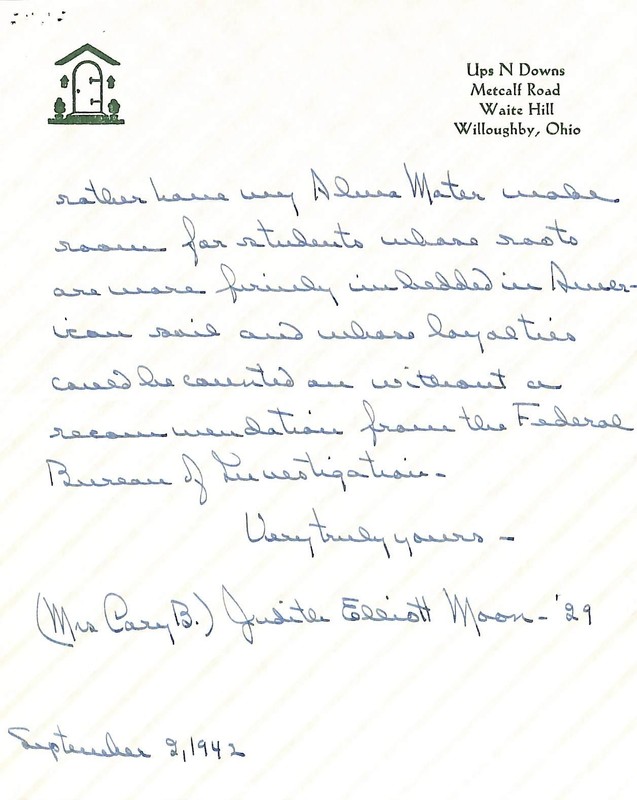 Ups N Downs
Metcalf Road
Waite Hill
Willoughby, Ohio
rather have my Alma Mater make
room for students whose roots
are more firmly imbedded in Amer-
ican soil and whose loyalties
could be counted on without a
recommendation from the Federal
Bureau of Investigation-
Very truly yours -
(Mrs Cary B.) Judith Elliott Moon - '29
September 2, 1942